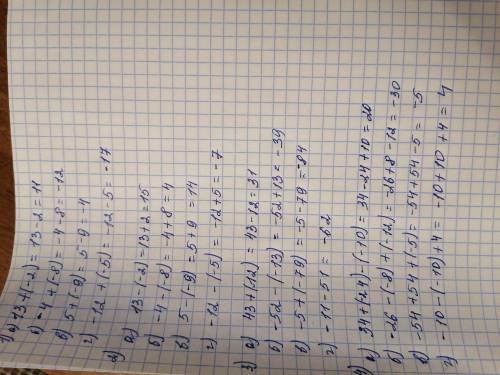 1) а) 13+(-2)=13-2=11
б) -4+(-8)=-4-8=-12
в) 5+(-9)=5-9=-4
г) -12+(-5)=-12-5=-17
2) а) 13-(-2)=13+2=15
б) -4-(-8)=-4+8=4
в) 5-(-9)=5+9=14
г) -12-(-5)=-12+5=-7
3) а) 43+(-12)=43-12=31
б) -52-(-13)=-52+13=-39
в) -5+(-79)=-5-79=-84
г) -11-51=-62
4) а) 34+(-24)-(-10)=34-24+10=20
б) -26-(-8)+(-12)=-26+8-12=-30
в) -54+54+(-5)=-54+54-5=-5
г) -10-(-10)+4=-10+10+4=4